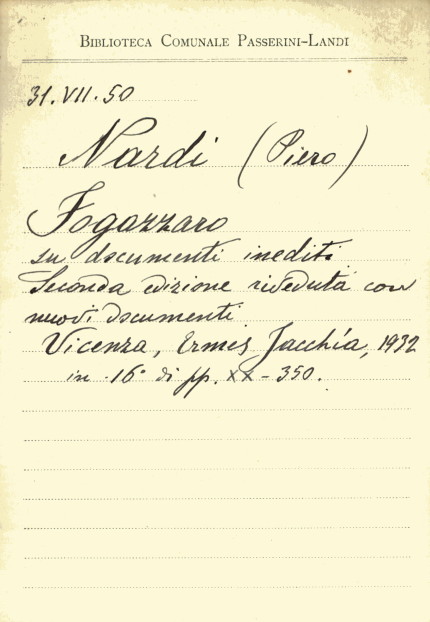 BIBLIOTECA COMUNALE PASSERINI-LANDI
31.VII.50
Nardi (Piero)
Fogazzaro
su documenti inediti
Seconda edizione riveduta con
nuovi documenti
Vicenza, Ermes Jacchía, 1932
in - 16° di pp. XX - 350.